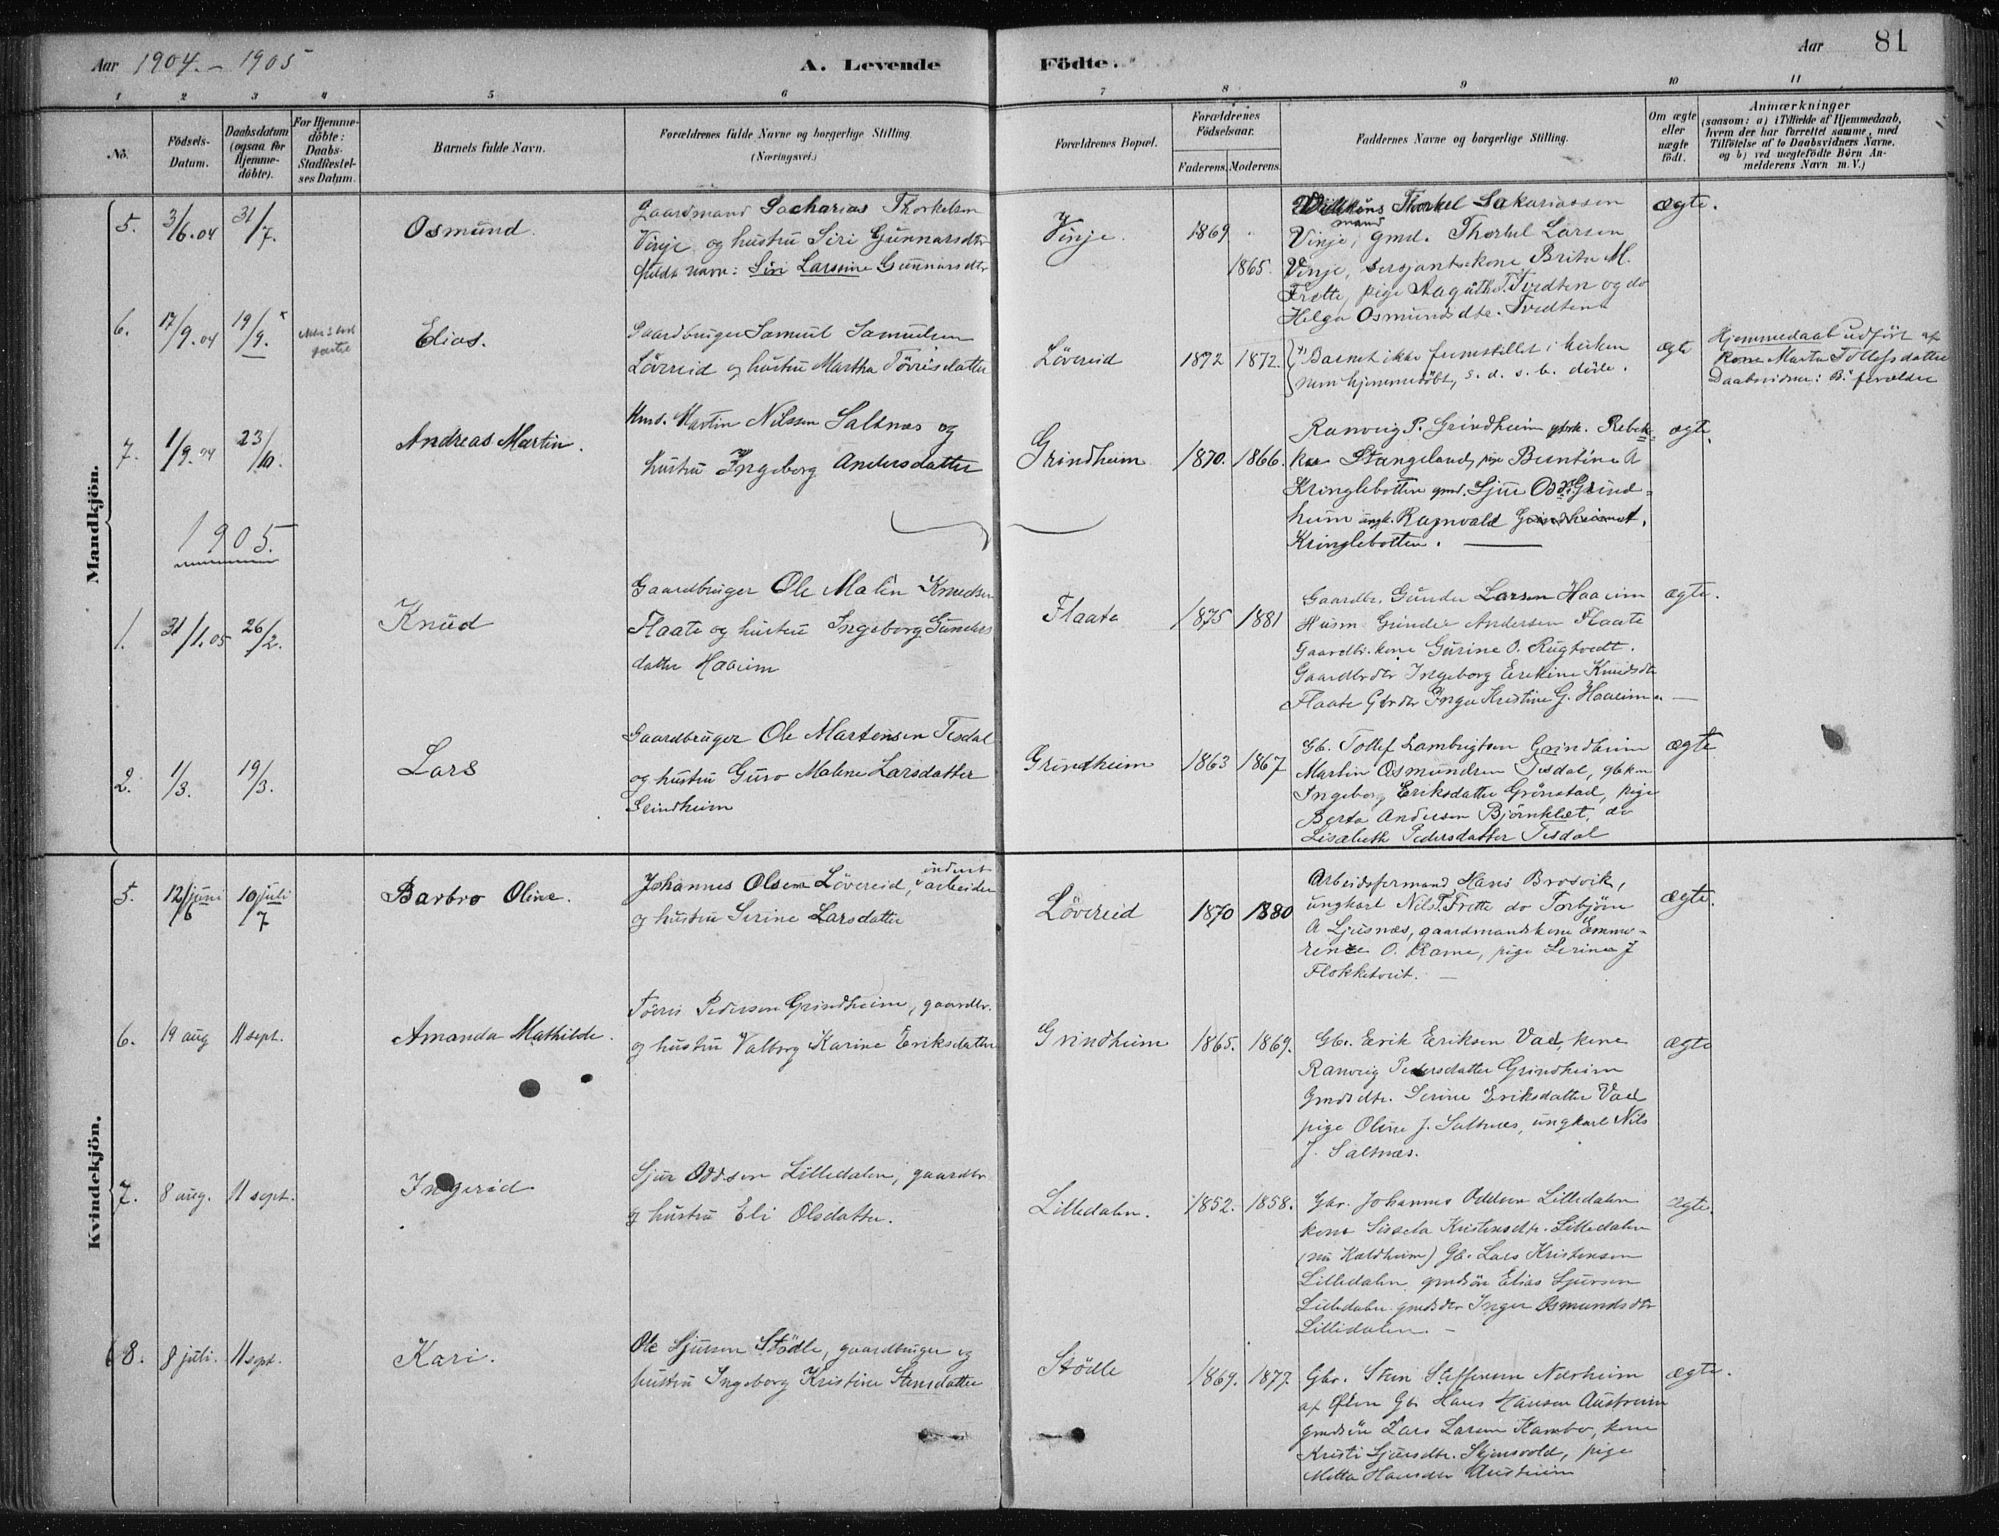 Aar 1904. - 1905
A. Levende Födte.
Aar 81
1 2 3 4 5 6 7 8 9 10 11
No.
Födsels-Datum.
Daabsdatum (ogsaa for Hjemme-döbte).
For Hjemme-döbte: Daabs-Stadfæstel-ses Datum.
Barnets fulde Navn.
Forældrenes fulde Navne og borgerlige Stilling.
(Næringsvei.)
Forældrenes Bopæl.
Forældrenes Födselsaar.
Faderens. Moderens.
Faddernes Navne og borgerlige Stilling.
Om ægte eller uægte födt.
Anmærkninger
(saasom: a) i Tilfælde af Hjemmedaab,
hvem der har forrettet samme, med
Tilföielse af to Daabsvidners Navne,
og b) ved uægtefödte Börn An-
melderens Navn m. V.)
Mandkjön.
5. 3/6.04 31/7. Osmund. Gaardmand Sacharias Thorkelsen
Vinje og hustru Siri Gunnarsdtr
fulde navn: Siri Larsine Gunnarsdtr
Vinje. 1869. 1865.
Thorkel Sakariassen
Vinje, gmd. Thorkel Larsen
Vinje, sersjantskone Brita M.
Frette, pige Aagathe T. Tvedten og do
Helga Osmundsdtr. Tvedten
ægte.
6. 17/9.04 19/9. Elias. Gaardbruger Samuel Samuelsen
Lövereid og hustru Martha Tövrisdatter
Lövereid 1872 1872.
Barnet ikke fremstillet i kirken
men hjemmedöbt, s. d. s. b. döde.
ægte
Hjemmedaab udfört af
kone Marta Tollefsdatter
Daabsvidner: B. forældre
7. 1/9.04 23/10. Andreas Martin. Hmd. Martin Nilssen Saltnæs og
hustru Ingeborg Andersdatter
Grindheim 1870. 1866.
Ranveig P. Grindheim gbrk. Rebek-
ka Stangeland, pige Buntine A
Kringlebotten gmd. Sjur Odds. Grind-
heim ungk. Ragnvald
Kringlebotten.
ægte.
1905.
1. 31/1.05 26/2. Knud Gaardbruger Ole Malin Knudsen
Flaate og hustru Ingeborg Gunders
datter Haaeim
Flaate 1875 1881
Gaardbr. Gunder Larsen Haaeim
Husm Gunder Andersen Flaate
Gaardbr. kone Gurine O. Rugtvedt.
Gaardbrdtr Ingeborg Erikine Knudsdtr
Flaate Gbrdtr Inga Kristine G. Haaeim.
ægte.
2. 1/3. 19/3. Lars Gaardbruger Ole Martensen Tesdal
og hustru Guro Malene Larsdatter
Grindheim
Grindheim 1863 1867
Gb. Tollef Lambrigtsen Grindheim
Martin Osmundsen Tesdal, gbkn
Ingeborg Eriksdatter Grönstad, pige
Berta Andersen Björnklæt, do
Lisabeth Pedersdatter Tesdal
ægte
Kvindekjön.
5. 12/6 juni 10/7 juli Barbro Oline. Johannes Olsen Lövereid, inderst arbeider
og hustru Serine Larsdatter
Lövereid 1870 1880
Arbeidsformand Hans Brosvik,
ungkarl Nils T. Frette do Torbjörn
A Ljusnæs, gaardmandskone Emme-
renze O. Rame, pige Serine J
Flokketveit.
ægte.
6. 19 aug 11 sept. Amanda Mathilde. Töris Pedersen Grindheim, gaardbr.
og hustru Valborg Karine Eriksdatter
Grindheim 1865. 1869.
Gb. Erik Eriksen Vad, kone
Ranveig Pedersdatter Grindheim
Gmdsdtr. Serine Eriksdatter Vad
pige Oline J. Saltnæs, ungkarl Nils
J. Saltnæs.
ægte
7. 8 aug. 11 sept. Ingerid Sjur Oddsen Lilledalen, gaardbr
og hustru Eli Olsdatter.
Lilledalen. 1852. 1858.
Gbr. Johannes Oddsen Lilledalen
kone Sisela Kristensdtr. Lilledalen
(nu Kaldheim) Gb. Lars Kristensen
Lilledalen gmdsön Elias Sjursen
Lilledalen gmdsdtr Inger Osmundsdtr
Lilledalen.
ægte.
8. 8 juli. 11 sept. Kari. Ole Sjursen Stödle, gaardbruger og
hustru Ingeborg Kristine Stensdatter
Stödle 1869. 1877.
Gbr. Sten Steffensen Nerheim
af Ölen Gb Hans Hansen Austreim
gmdsön Lars Larsen Kambo, kone
Kristi Sjursdtr. Skjensvold, pige
Metta Hansdtr Austreim
ægte.